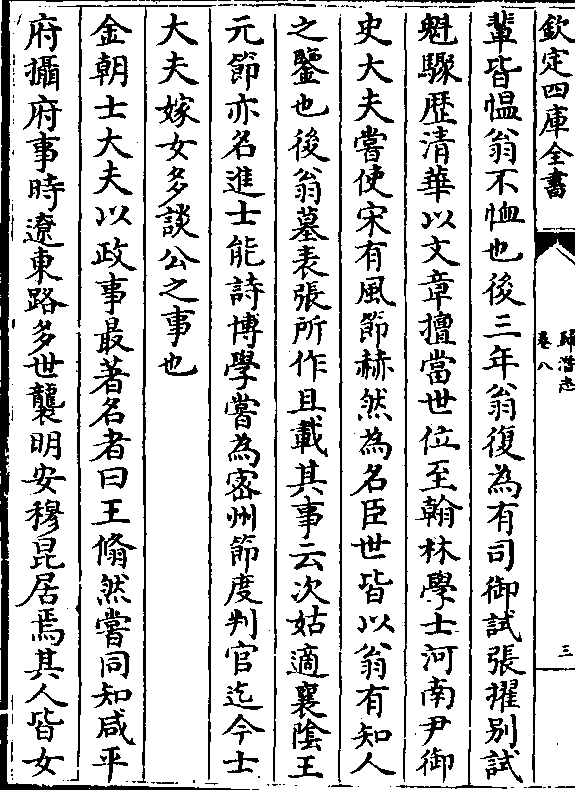 欽定四庫全書
歸潛志
卷八
三
輩皆愠翁不恤也後三年翁復為有司御試張擢别試
魁驟歴清華以文章擅當世位至翰林學士河南尹御
史大夫嘗使宋有風節赫然為名臣世皆以翁有知人
之鑒也後翁墓表張所作且載其事云次姑適襄隂王
元節亦名進士能詩博學嘗為宻州節度判官迄今士
大夫嫁女多談公之事也
金朝士大夫以政事最著名者曰王翛然嘗同知咸平
府攝府事時遼東路多世襲明安穆昆居焉其人皆女